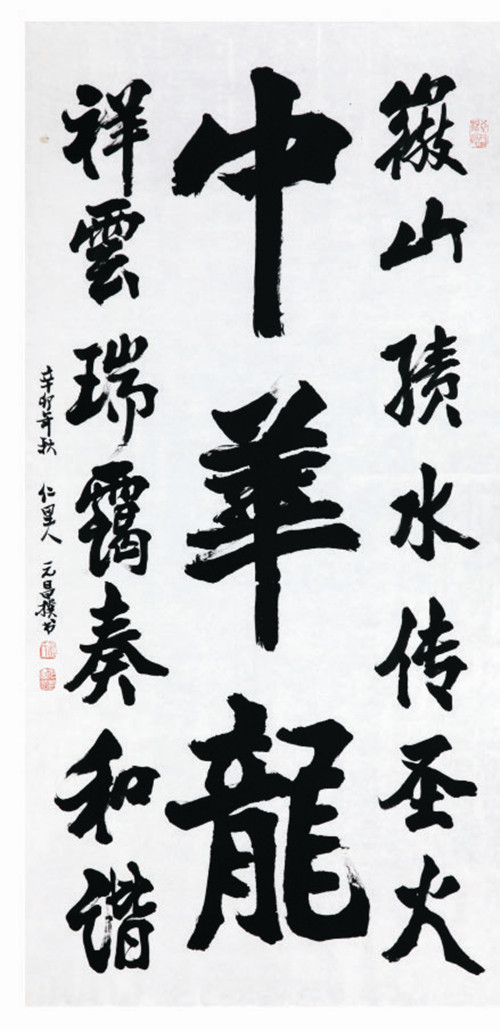 徽山绩水传圣火
中華龍
祥雲瑞霭奏和谐
辛卯年秋 仁里人 元昌撰书